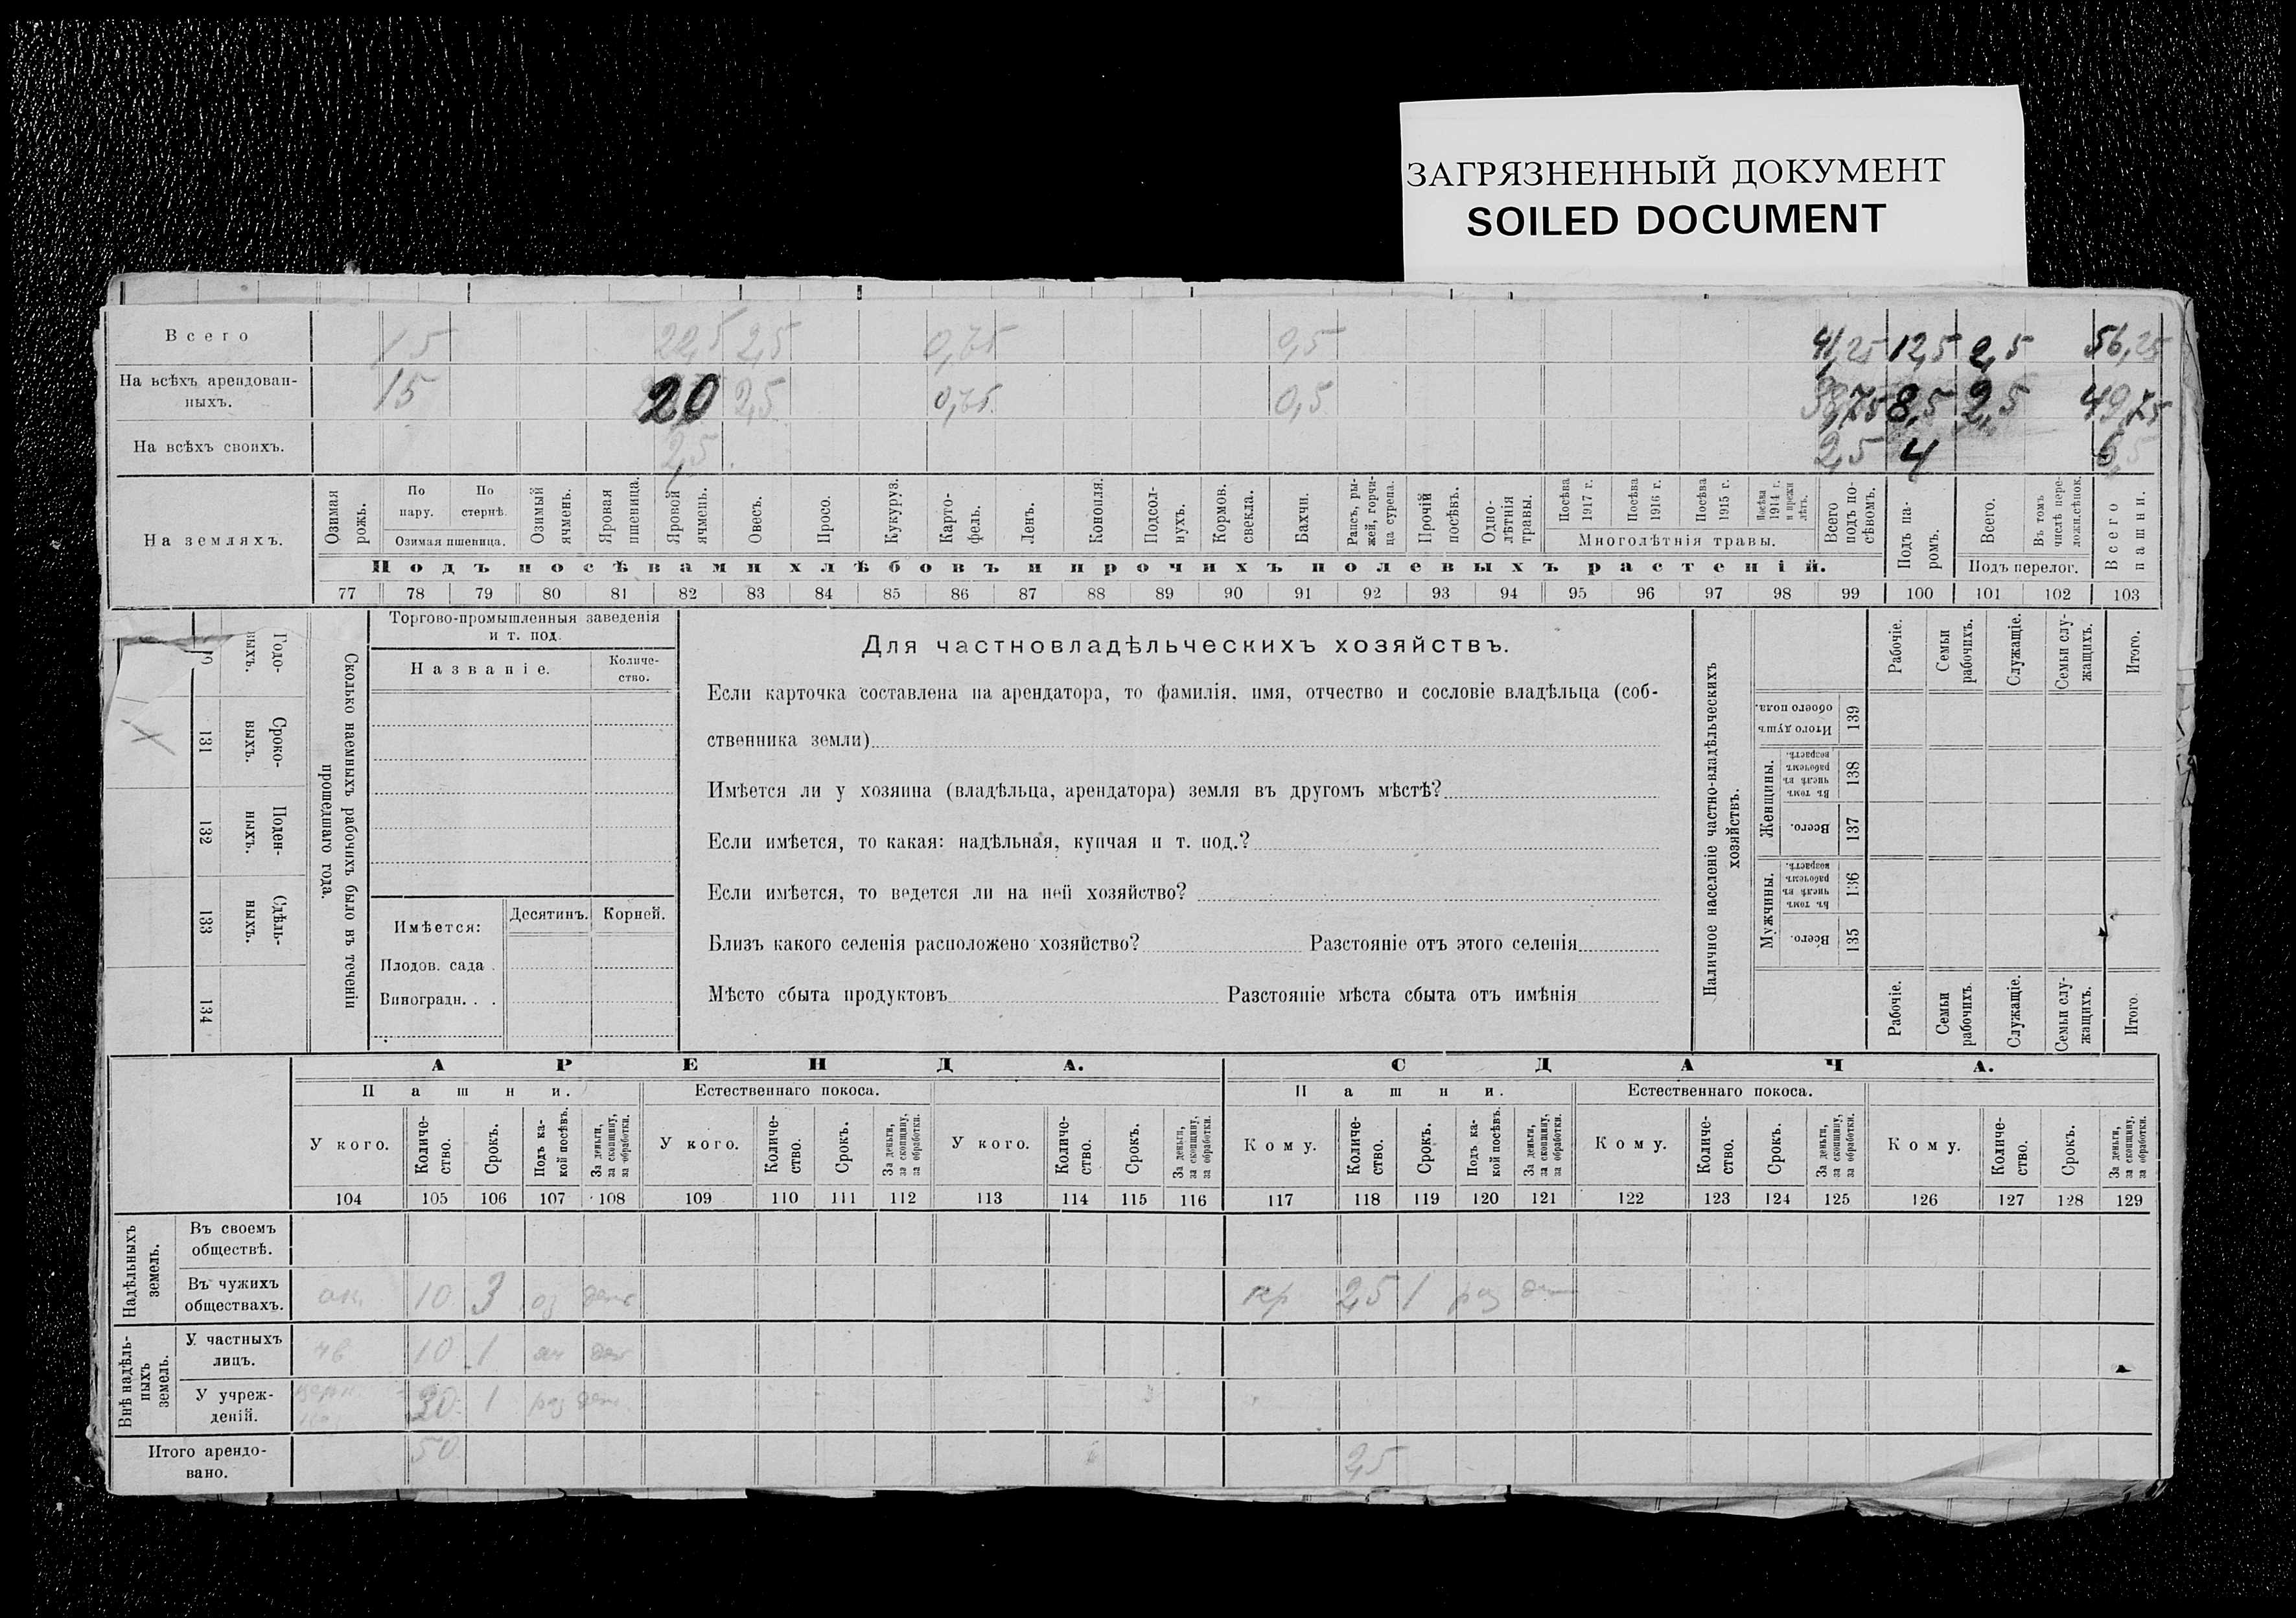 ЗАГРЯЗНЕННЫЙ ДОКУМЕНТ
SOILED DOCUMENT
Всего 15 22,5 2,5 0,75 0,5 41,25 12,5 2,5 56,25
На всѣхъ арендован-
ныхъ. 15 20 2,5 0,75 0,5 38,75 8,5 2,5 49,75
На всѣхъ своихъ. 2,5 2,5 4 6,5
На земляхъ.
Озимая рожь.
По пару.
По стернѣ.
Озимая пшеница.
Озимый ячмень.
Яровая пшеница.
Яровой ячмень.
Овесъ.
Просо.
Кукуруз.
Карто-
фель.
Ленъ.
Конопля.
Подсол-
нухъ.
Кормов. свекла.
Бахчи.
Рапсъ, ры-
жей, горчи-
ца сурепа.
Прочій посѣвъ.
Одно-
лѣтнія травы.
Посѣва 1917 г.
Посѣва 1916 г.
Посѣва 1915 г.
Посѣва 1914 г. и прежн лѣтъ.
Многолѣтнія травы.
Всего подъ по-
сѣвомъ.
Подъ па-
ромъ.
Всего.
Въ томъ числѣ пере-
локи.сѣнок.
Подъ перелог.
Всего пашни.
Подъ посѣвами хлѣбовъ и прочихъ полевыхъ растеній.
77 78 79 80 81 82 83 84 85 86 87 88 89 90 91 92 93 94 95 96 97 98 99 100 101 102 103
Годо-
выхъ.
Сроко-
выхъ.
131
Поден-
ныхъ.
132
Сдѣль-
ныхъ.
133
134
Сколько наемныхъ рабочихъ было въ теченіи
прошедшаго года.
Торгово-промышленныя заведенія
и т. под.
Названіе.
Количе-
ство.
Имѣется:
Десятинъ.
Корней.
Плодов. сада .
Виноградн. . .
Для частновладѣльческихъ хозяйствъ.
Если карточка составлена на арендатора, то фамилія, имя, отчество и сословіе владѣльца (соб-
ственника земли)
Имѣется ли у хозяина (владѣльца, арендатора) земля въ другомъ мѣстѣ?
Если имѣется, то какая: надѣльная, купчая и т. под.?
Если имѣется, то ведется ли на ней хозяйство?
Близъ какого селенія расположено хозяйство? Разстояніе отъ этого селенія
Мѣсто сбыта продуктовъ Разстояніе мѣста сбыта отъ имѣнія
Наличное населеніе частно-владѣльческихъ
хозяйствъ.
Рабочіе.
Семьи рабочихъ.
Служащіе.
Семьи слу-
жащихъ.
Итого.
Итого душъ обоего пола.
139
Женщины.
Въ томъ числѣ въ рабочемъ возрастѣ.
138
Всего.
137
Мужчины.
Въ томъ числѣ въ рабочемъ возрастѣ.
136
Всего.
135
Рабочіе.
Семьи рабочихъ.
Служащіе.
Семьи слу-
жащихъ.
Итого.
АРЕНДА. СДАЧА.
Пашни. Естественнаго покоса. Пашни. Естественнаго покоса.
У кого.
Количе-
ство.
Срокъ.
Подъ ка-
кой посѣвъ.
За деньги, за скопщину, за обработки.
У кого.
Количе-
ство.
Срокъ.
За деньги, за скопщину, за обработки.
У кого.
Количе-
ство.
Срокъ.
За деньги, за скопщину, за обработки.
Кому.
Количе-
ство.
Срокъ.
Подъ ка-
кой посѣвъ.
За деньги, за скопщину, за обработки.
Кому.
Количе-
ство.
Срокъ.
За деньги, за скопщину, за обработки.
Кому.
Количе-
ство.
Срокъ.
За деньги, за скопщину, за обработки.
104 105 106 107 108 109 110 111 112 113 114 115 116 117 118 119 120 121 122 123 124 125 126 127 128 129
Надѣльныхъ земель.
Въ своемъ
обществѣ.
Въ чужихъ
обществахъ. 10 3 оз ден 2,5 1 раз
Внѣ надѣль-
ныхъ земель.
У частныхъ
лицъ. 10 1
У учреж-
деній. 30 1 раз ден
Итого арендо-
вано. 50 2,5